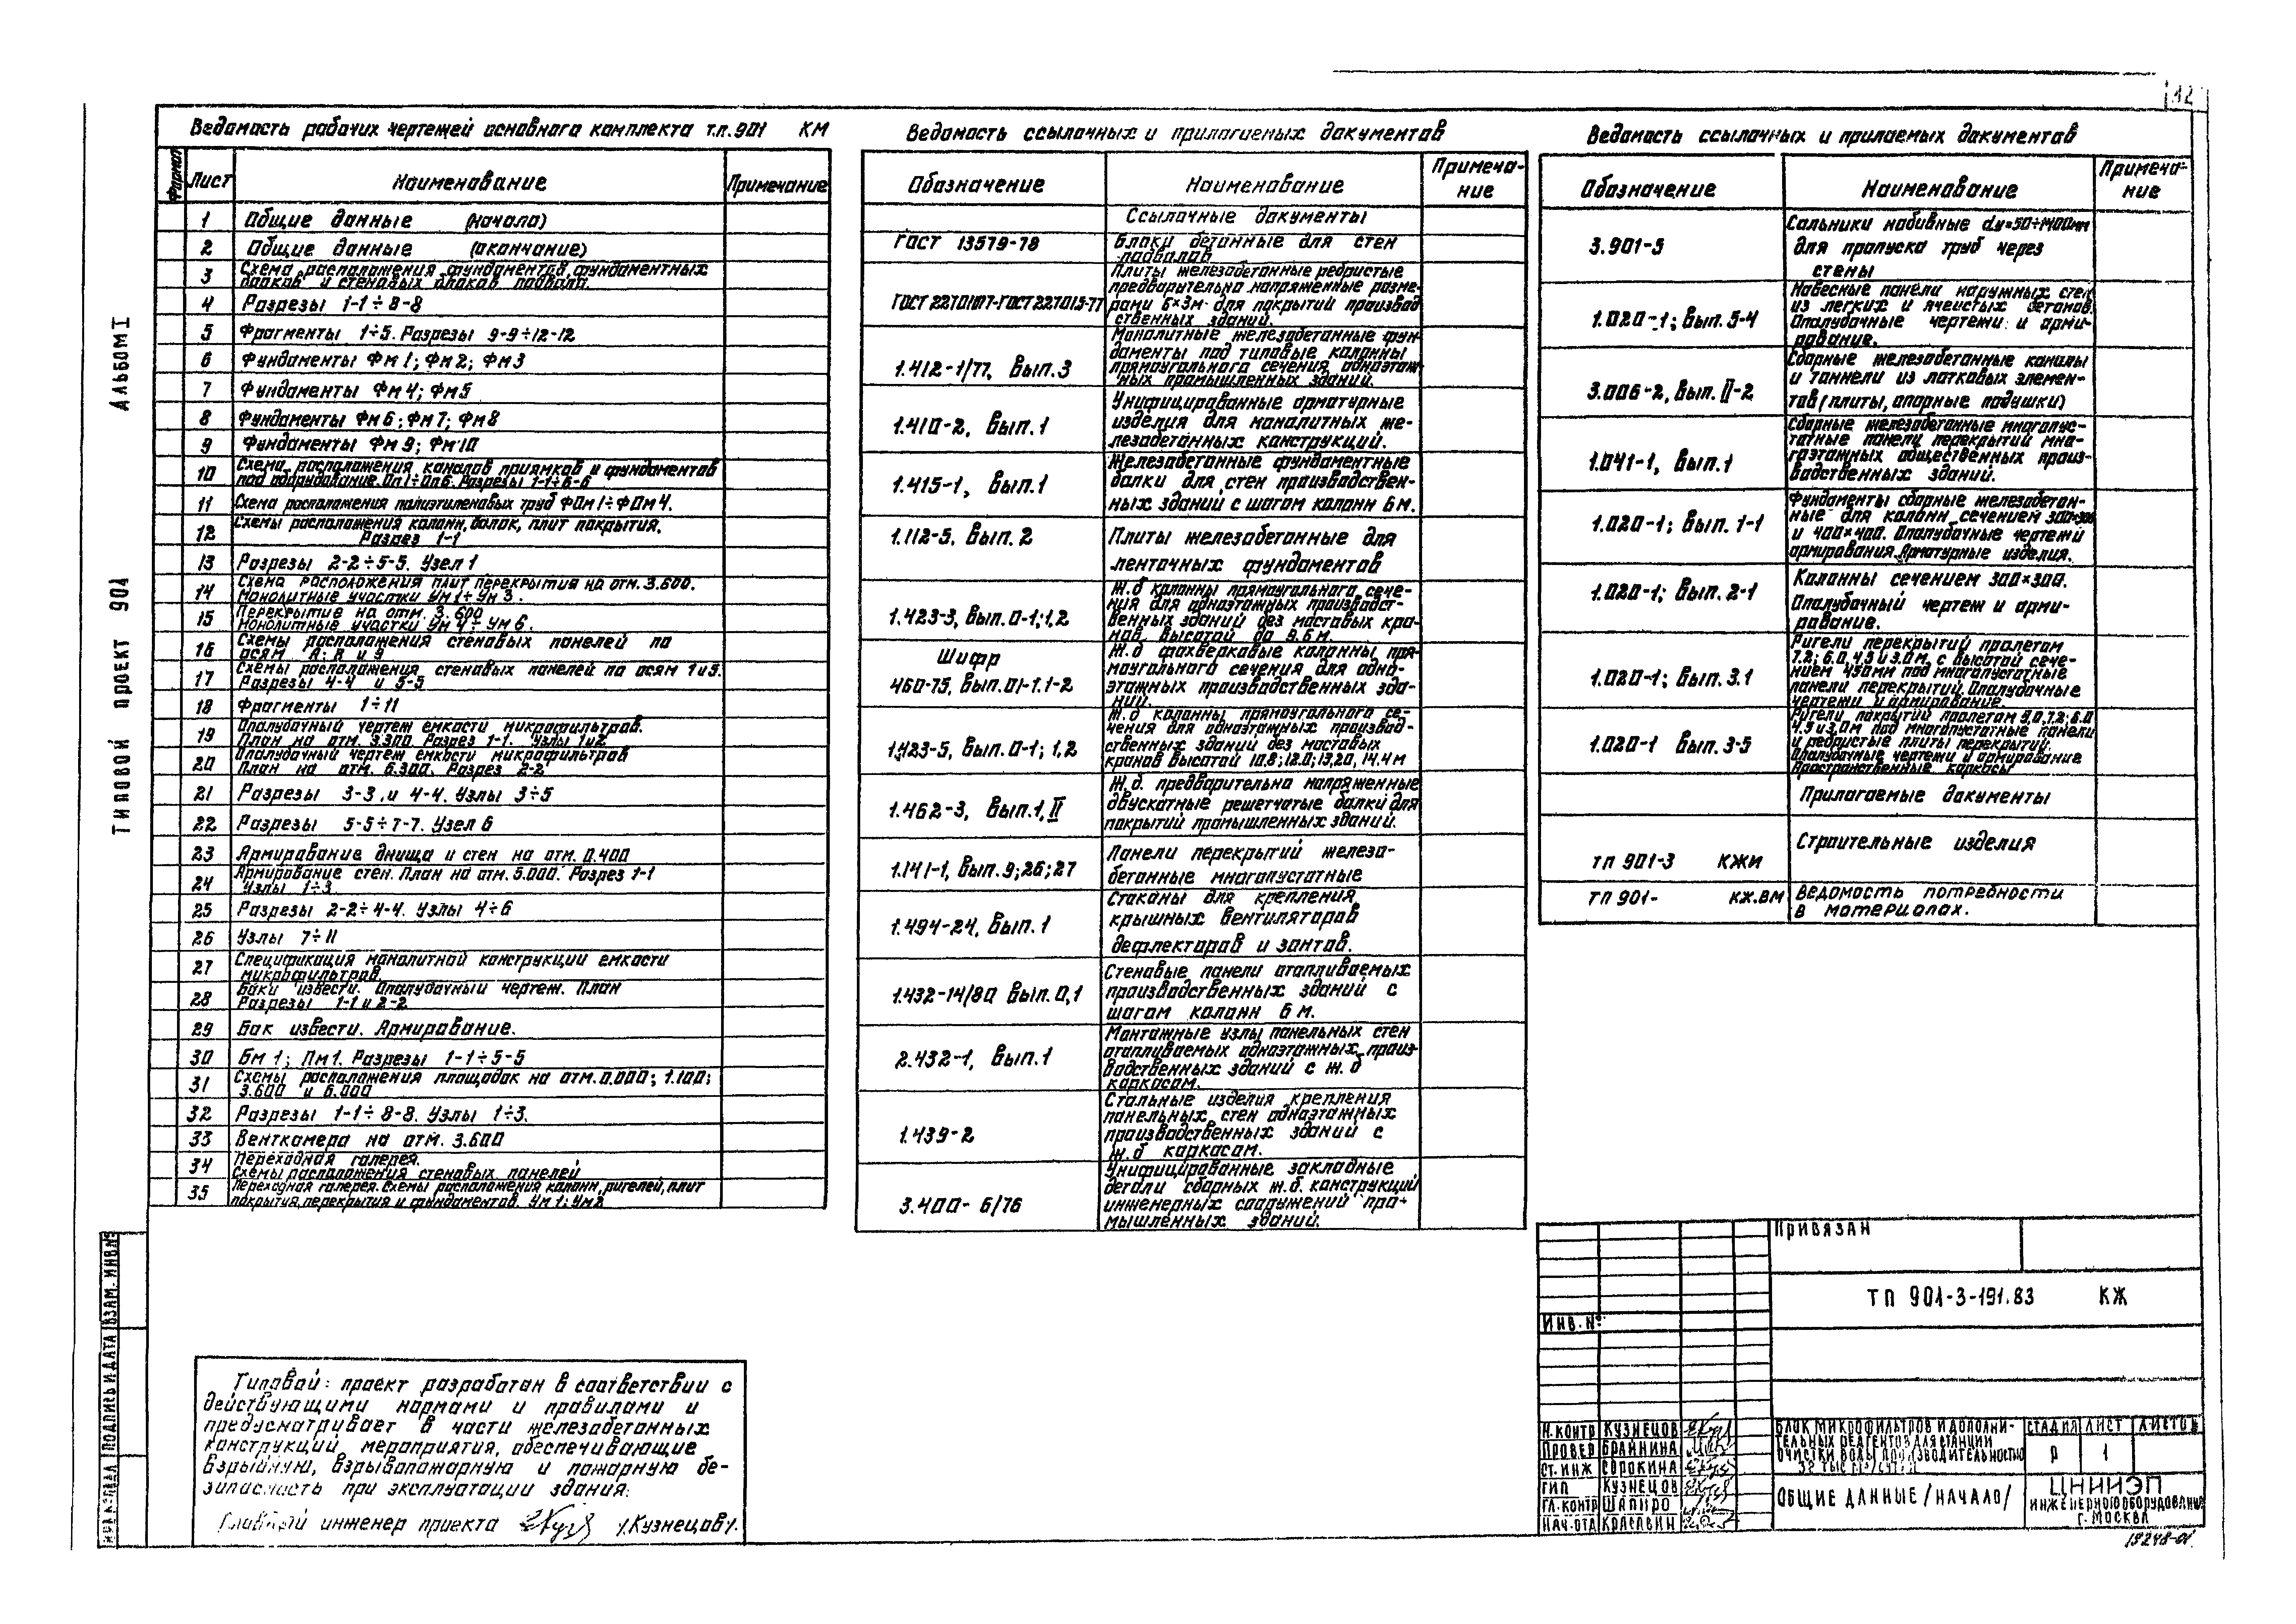 12
Альбом I
Типовой проект 901
Ведомость рабочих чертежей основного комплекта т.п. 901 КМ
Формат Лист Наименование Примечание
1 Общие данные (начало)
2 Общие данные (окончание)
3 Схема расположения фундаментов, фундаментных
балков и стеновых блоков подвала.
4 Разрезы 1-1÷8-8
5 Фрагменты 1÷5. Разрезы 9-9÷12-12
6 Фундаменты Фм1; Фм2; Фм3
7 Фундаменты Фм4; Фм5
8 Фундаменты Фм6; Фм7; Фм8
9 Фундаменты Фм9; Фм10
10 Схема расположения каналов приямков и фундаментов
под оборудование Оп1÷Оп6. Разрезы 1-1÷6-6
11 Схема расположения полиэтиленовых труб ФОм1÷ФОм4.
12 Схемы расположения колонн, балок, плит покрытия.
Разрез 1-1
13 Разрезы 2-2÷5-5. Узел 1
14 Схема расположения плит перекрытия на отм. 3.600.
Монолитные участки Ум1÷Ум3.
15 Перекрытие на отм. 3.600
Монолитные участки Ум4÷Ум6.
16 Схемы расположения стеновых панелей по
осям А; В и 9
17 Схемы расположения стеновых панелей по осям 1 и 5.
Разрезы 4-4 и 5-5
18 Фрагменты 1÷11
19 Опалубочный чертеж емкости микрофильтров.
План на отм. 3.300. Разрез 1-1. Узлы 1и2
20 Опалубочный чертеж емкости микрофильтров
План на отм. 6.300. Разрез 2-2
21 Разрезы 3-3 и 4-4. Узлы 3÷5
22 Разрезы 5-5÷7-7. Узел 6
23 Армирование днища и стен на отм. 0.400
24 Армирование стен. План на отм. 5.000. Разрез 1-1
Узлы 1÷3
25 Разрезы 2-2÷4-4. Узлы 4÷6
26 Узлы 7÷11
27 Спецификация монолитной конструкции емкости
микрофильтров
28 Баки извести. Опалубочный чертеж. План
Разрезы 1-1 и 2-2
29 Бак извести. Армирование.
30 Бм1; Пм1. Разрезы 1-1÷5-5
31 Схемы расположения площадок на отм. 0.000; 1.100;
3.600 и 6.000
32 Разрезы 1-1÷8-8. Узлы 1÷3.
33 Венткамера на отм. 3.600
34 Переходная галерея.
Схемы расположения стеновых панелей
35 Переходная галерея. Схемы расположения колонн, ригелей, плит
покрытия, перекрытия и фундаментов. Ум1; Ум2
Ведомость ссылочных и прилагаемых документов
Обозначение Наименование Примеча-
ние
Ссылочные документы
ГОСТ 13579-78 Блоки бетонные для стен
подвалов
ГОСТ 22701.0-77-ГОСТ 22701.5-77 Плиты железобетонные ребристые
предварительно напряженные разме-
рами 6×3м для покрытий производ
ственных зданий.
1.412-1/77, Вып.3 Монолитные железобетонные фун-
даменты под типовые колонны
прямоугольного сечения одноэтаж
ных промышленных зданий.
1.410-2, Вып.1 Унифицированные арматурные
изделия для монолитных же-
лезобетонных конструкций.
1.415-1, Вып.1 Железобетонные фундаментные
балки для стен производствен-
ных зданий с шагом колонн 6м.
1.112-5, Вып. 2 Плиты железобетонные для
ленточных фундаментов
1.423-3, Вып. 0-1; 1,2 Ж.б колонны прямоугольного сече-
ния для одноэтажных производст-
венных зданий без мостовых кра-
нов, высотой до 9.6м.
Шифр
460-75, Вып. 01-1.1-2 Ж.б фахверковые колонны пря-
моугольного сечения для одно-
этажных производственных зда-
ний.
1.423-5, Вып. 0-1; 1,2 Ж.б колонны прямоугольного се-
чения для одноэтажных производ-
ственных зданий без мостовых
кранов высотой 10,8; 12.0; 13,20, 14.4м
1.462-3, Вып. 1, II Ж.б. предварительно напряженные
двускатные решетчатые балки для
покрытий промышленных зданий.
1.141-1, Вып. 9; 26; 27 Панели перекрытий железо-
бетонные многопустотные
1.494-24, Вып. 1 Стаканы для крепления
крышных вентиляторов
дефлекторов и зонтов.
1.432-14/80 Вып. 0,1 Стеновые панели отапливаемых
производственных зданий с
шагом колонн 6м.
2.432-1, Вып. 1 Монтажные узлы панельных стен
отапливаемых одноэтажных произ-
водственных зданий с ж.б
каркасом.
1.439-2 Стальные изделия крепления
панельных стен одноэтажных
производственных зданий с
ж.б каркасом.
3.400-6/76 Унифицированные закладные
детали сборных ж.б. конструкций
инженерных сооружений про-
мышленных зданий.
Ведомость ссылочных и прилаемых документов
Обозначение Наименование Примеча-
ние
3.901-5 Сальники набивные dу=50÷1400мм
для пропуска труб через
стены
1.020-1; Вып. 5-4 Навесные панели наружных стен
из легких и ячеистых бетонов.
Опалубочные чертежи и арми-
рование.
3.006-2, Вып. II-2 Сборные железобетонные каналы
и тоннели из лотковых элемен-
тов (плиты, опорные подушки)
1.041-1, Вып. 1 Сборные железобетонные многопус-
тотные панели перекрытий мно-
гоэтажных общественных произ-
водственных зданий.
1.020-1; Вып. 1-1 Фундаменты сборные железобетон-
ные для колонн сечением 300×300
и 400×400. Опалубочные чертежи
армирования. Арматурные изделия.
1.020-1; Вып. 2-1 Колонны сечением 300×300.
Опалубочный чертеж и арми-
рование.
1.020-1; Вып. 3.1 Ригели перекрытий пролетом
7.2; 6.0, 4.5 и 3.0м, с высотой сече-
нием 450мм под многопустотные
панели перекрытий. Опалубочные
чертежи и армирование.
1.020-1 Вып. 3-5 Ригели покрытий пролетом 9.0, 7.2; 6.0
4.5 и 3.0м под многопустотные панели
и ребристые плиты перекрытий.
Опалубочные чертежи и армирование
Пространственные каркасы
Прилагаемые документы
ТП 901-3 КЖИ Строительные изделия
ТП 901- КЖ.ВМ Ведомость потребности
в материалах.
Типовой проект разработан в соответствии с
действующими нормами и правилами и
предусматривает в части железобетонных
конструкций мероприятия, обеспечивающие
взрывную, взрывопожарную и пожарную бе-
зопасность при эксплуатации здания.
Главный инженер проекта /Кузнецов/.
Взам. инв.№
Подпись и дата
Инв.№ подл
Привязан
Инв.№
ТП 901-3-191.83 КЖ
Н.контр Кузнецов
Провер Брайнина
Ст.инж Сорокина
ГИП Кузнецов
Гл.контр Шапиро
Нач.отд Красавин
Блок микрофильтров и дополни-
тельных реагентов для станции
очистки воды производительностью
32 тыс м3/сутки
Стадия Лист Листов
Р 1
Общие данные /начало/
ЦНИИЭП
инженерного оборудования
г. Москва
19248-01